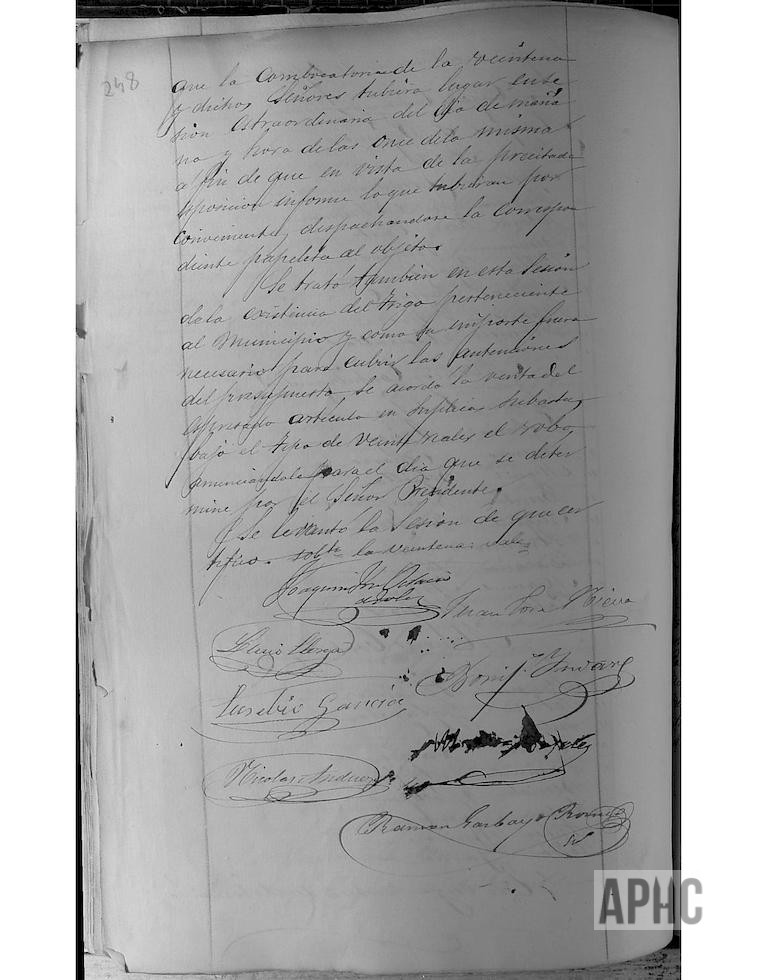 248
que la combocatoria de la veintena
y dichos Señores tubiera lugar en se
sion estraordinaria del dia de maña
na y hora de las once de la misma
a fin de que en vista de la precitada
esposicion informe lo que tubieran por
conveniente, despachandose la correspon
diente papeleta al objeto.
Se trató tambien en esta Sesión
de la existencia del trigo perteneciente
al Municipio y como su importe fuera
necesario para cubrir las atenciones
del presupuesto se acordo la venta del
espresado articulo en publica subasta,
bajo el tipo de veinte reales el robo,
anunciandole para el dia que se deter
mine por el Señor Presidente.
Se levantó la Sesión de que cer
tifico. la veintena: vale
Joaquin
Juan José
Eusebio Garcia
Nicolas
Ramon Garbayo
APHC